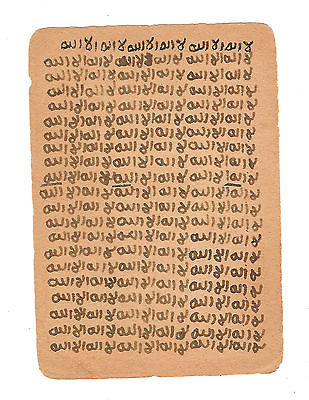 لا اله الا الله لا اله الا الله لا اله الا الله
لا اله الا الله لا اله الا الله لا اله الا الله
لا اله الا الله لا اله الا الله لا اله الا الله
لا اله الا الله لا اله الا الله لا اله الا الله
لا اله الا الله لا اله الا الله لا اله الا الله
لا اله الا الله لا اله الا الله لا اله الا الله
لا اله الا الله لا اله الا الله لا اله الا الله
لا اله الا الله لا اله الا الله لا اله الا الله
لا اله الا الله لا اله الا الله لا اله الا الله
لا اله الا الله لا اله الا الله لا اله الا الله
لا اله الا الله لا اله الا الله لا اله الا الله
لا اله الا الله لا اله الا الله لا اله الا الله
لا اله الا الله لا اله الا الله لا اله الا الله
لا اله الا الله لا اله الا الله لا اله الا الله
لا اله الا الله لا اله الا الله لا اله الا الله
لا اله الا الله لا اله الا الله لا اله الا الله
لا اله الا الله لا اله الا الله لا اله الا الله
لا اله الا الله لا اله الا الله لا اله الا الله
لا اله الا الله لا اله الا الله لا اله الا الله
لا اله الا الله لا اله الا الله لا اله الا الله
لا اله الا الله لا اله الا الله لا اله الا الله